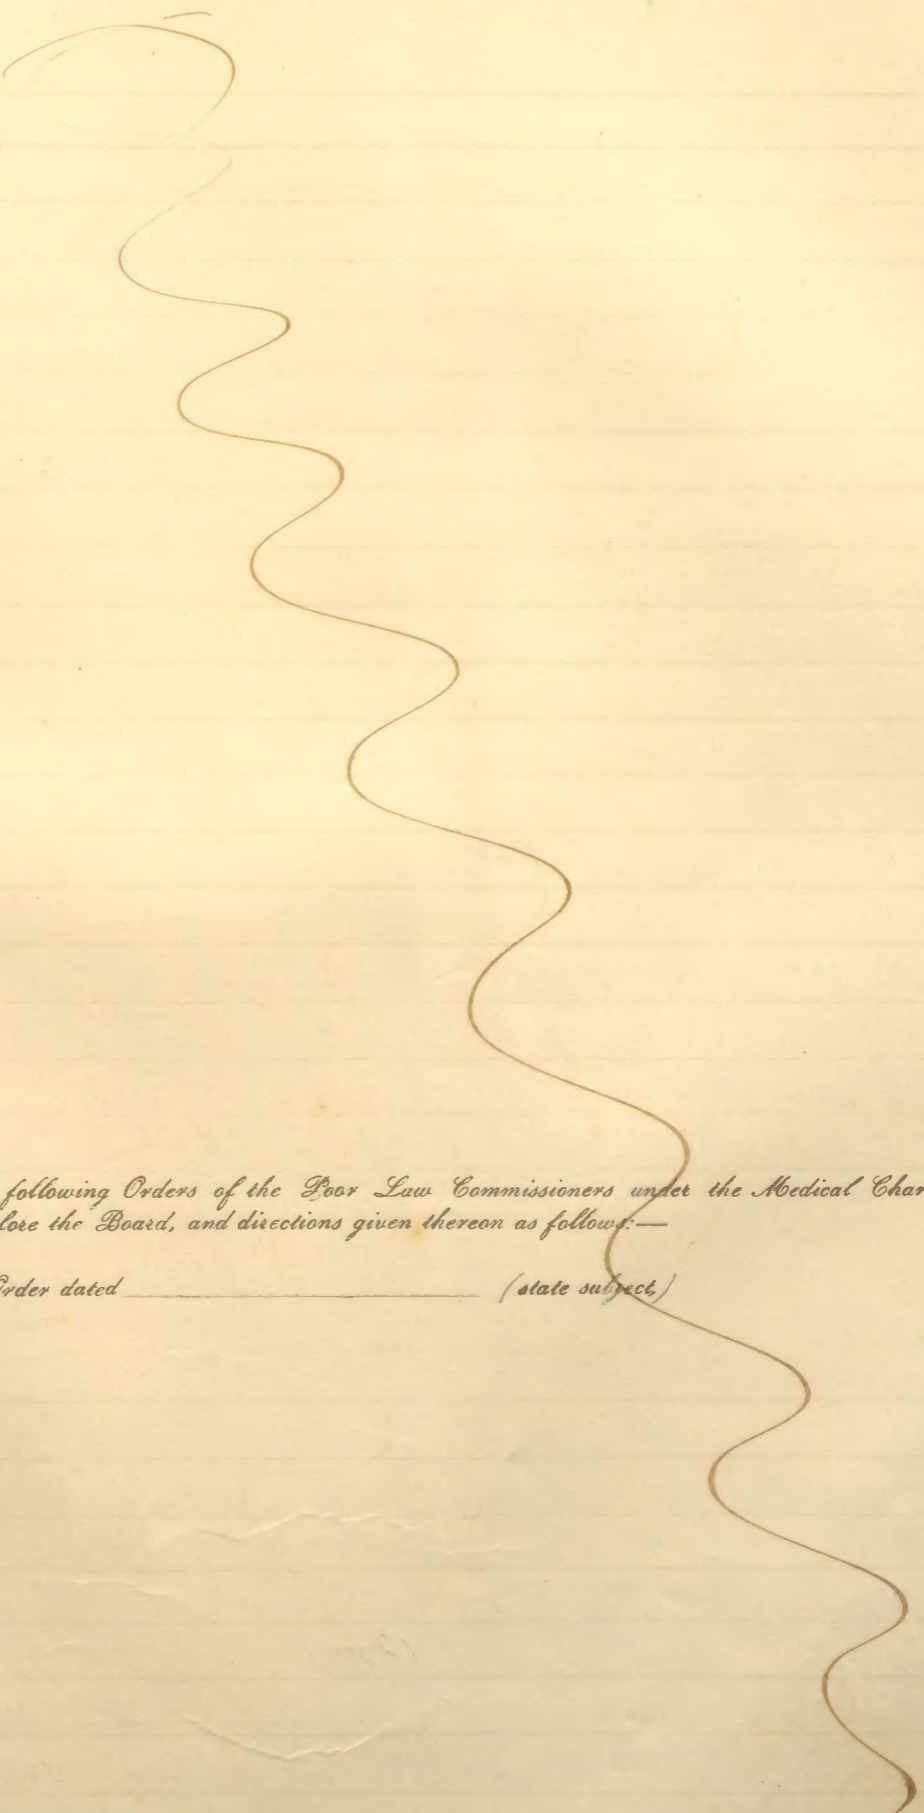 following Orders of the Poor Law Commissioners under the Medical Char
lore the Board, and directions given thereon as follows:—
Order dated (state subject)